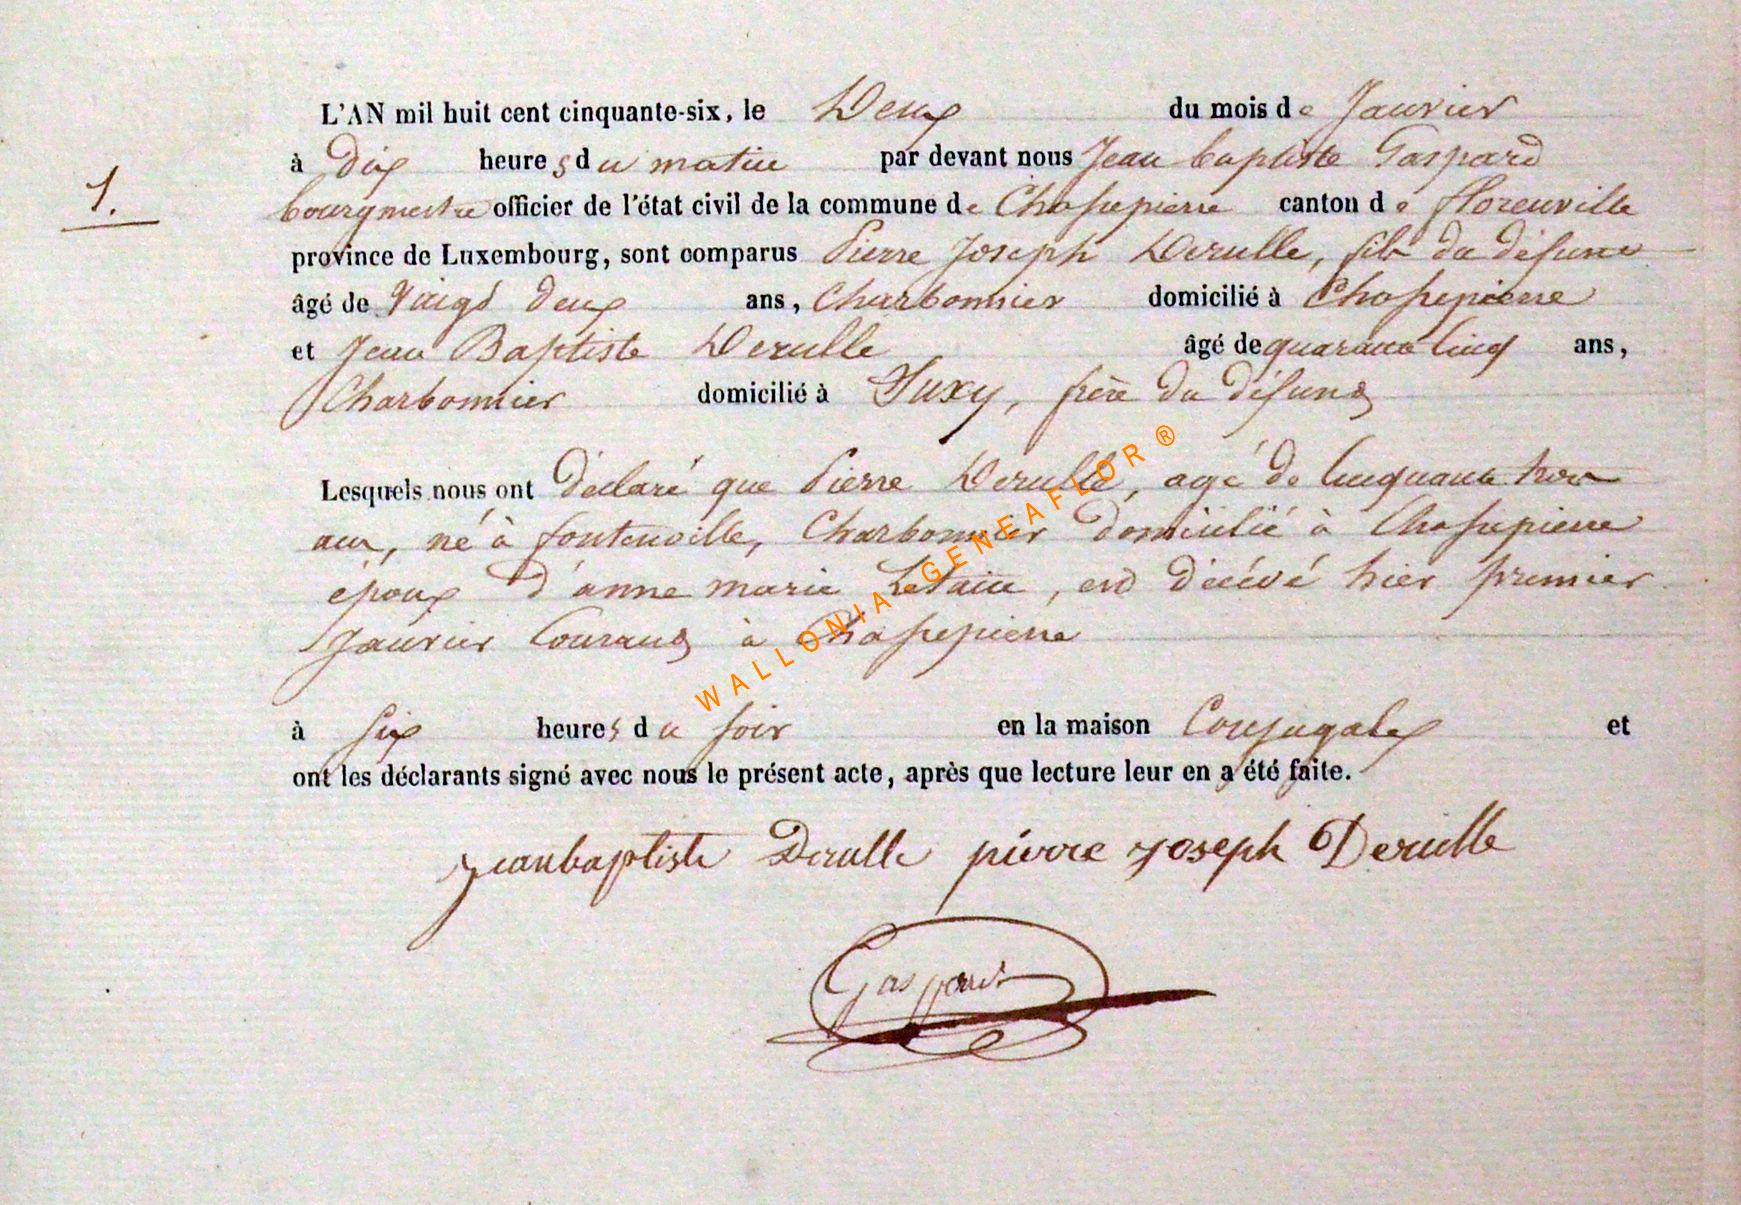 L'AN mil huit cent cinquante-six, le Deux du mois de Janvier
1.
à Dix heures du matin par devant nous Jean baptiste Gaspard
bourgmestre officier de l'état civil de la commune de Chassepierre canton de florenville
province de Luxembourg, sont comparus Pierre Joseph Derulle, fils du défunt
âgé de Vingt deux ans, Charbonnier domicilié à Chassepierre
et Jean Baptiste Derulle âgé de quarante Cinq ans,
Charbonnier domicilié à Suxy, frère du défunt
Lesquels nous ont déclaré que Pierre Derulle, agé de Cinquante trois
ans, né à fontenoille, Charbonnier domicilié à Chassepierre
époux d'anne marie Letaiu, est décédé hier premier
Janvier Courant à Chassepierre
WALLONIA GENEAFLOR ®
à Six heures du soir en la maison Conjugale et
ont les déclarants signé avec nous le présent acte, après que lecture leur en a été faite.
jeanbaptiste Derulle pierre joseph Derulle
Gaspard